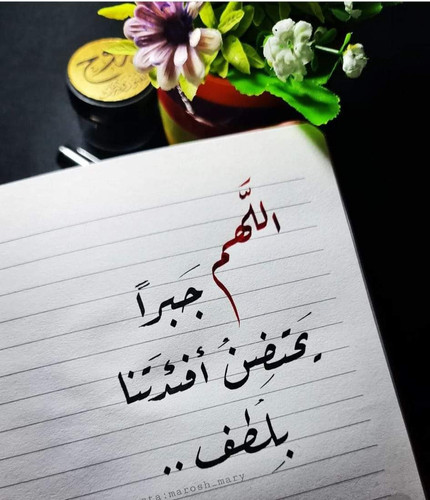 اللَّهم
جَبراً
يَحتضِنُ أفئدَتَنا
بِلُطف..
insta:marosh_mary